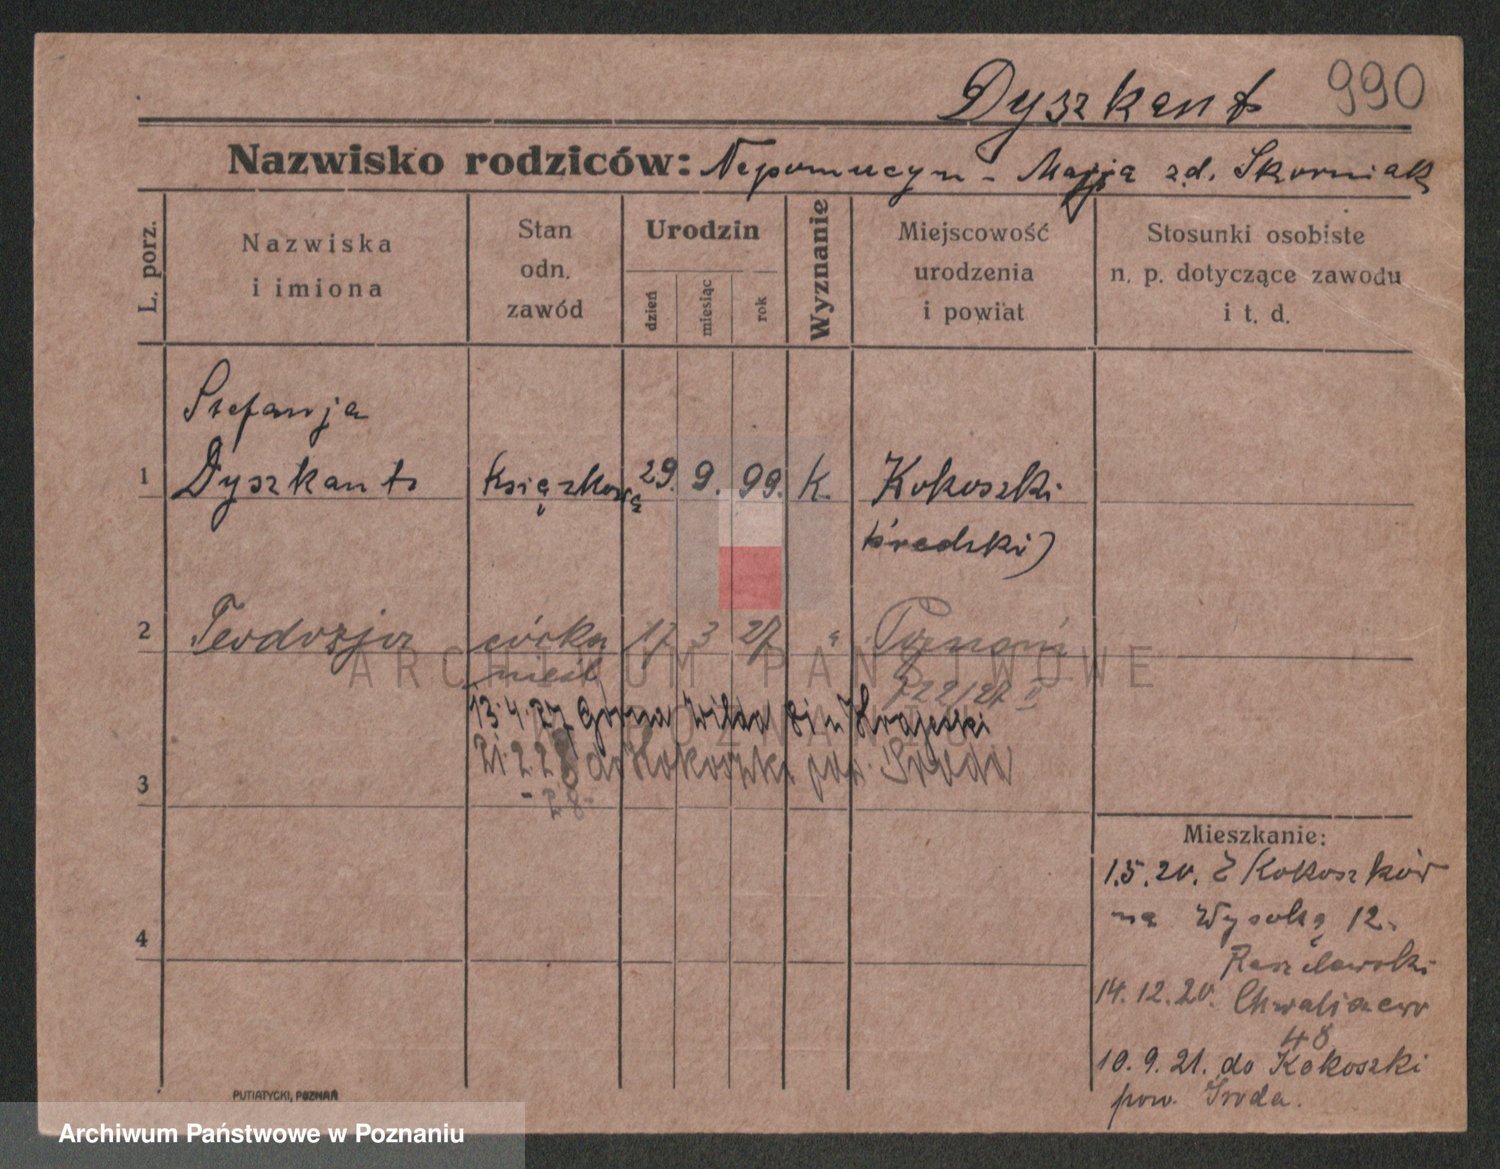 Dyszkant 990
Nazwisko rodziców: Nepomucyn - Marja zd. Skorniak
L. porz.
Nazwiska
i imiona
Stan
odn.
zawód
Urodzin
dzień
miesiąc
rok
Wyznanie
Miejscowość
urodzenia
i powiat
Stosunki osobiste
n. p. dotyczące zawodu
i t. d.
Stefanja
1 Dyszkant książkowa 29. 9. 99. k. Kokoszki
średzki)
2 Teodozja córka 17 3 27 " Poznań
nieśl 722/27 II
13.4.27 Górna Wilda
21.2.28 do Kokoszki pow. Środa
- 28 -
3
4
Mieszkanie:
1.5.20. Z Kokoszków
na Wysoką 12.
14.12.20. Chwaliszewo
48
10.9.21. do Kokoszki
pow. Środa.
PUTIATYCKI, POZNAŃ
ARCHIWUM PAŃSTWOWE
W POZNANIU
Archiwum Państwowe w Poznaniu